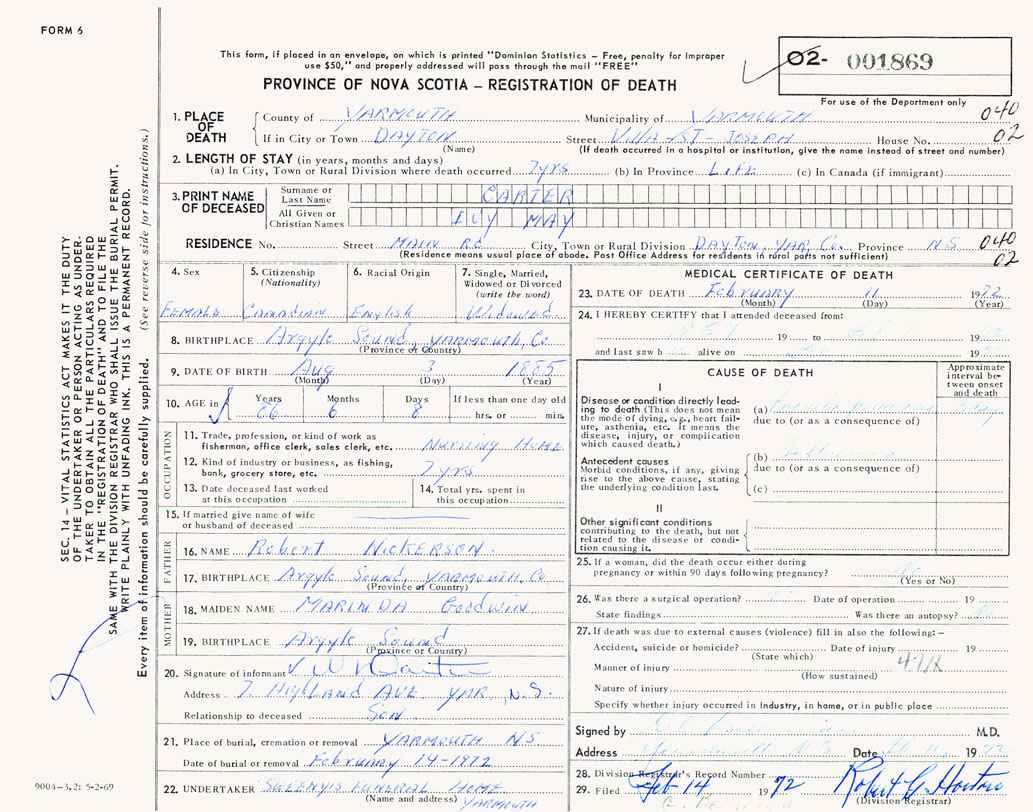 FORM 6
This form, if placed in an envelope, on which is printed "Dominion Statistics – Free, penalty for improper
use $50," and properly addressed will pass through the mail "FREE"
PROVINCE OF NOVA SCOTIA – REGISTRATION OF DEATH
02- 001869
For use of the Department only
040
02
1. PLACE OF DEATH
County of YARMOUTH Municipality of YARMOUTH
If in City or Town DAYTON Street VILLA ST-JOSEPH House No.
(Name) (If death occurred in a hospital or institution, give the name instead of street and number)
2. LENGTH OF STAY (in years, months and days)
(a) In City, Town or Rural Division where death occurred 7yrs (b) In Province LIFE (c) In Canada (if immigrant)
3. PRINT NAME OF DECEASED
Surname or Last Name CARTER
All Given or Christian Names IVY MAY
RESIDENCE No. Street MAIN RD City, Town or Rural Division DAYTON, YAR Co. Province N.S. 040
(Residence means usual place of abode. Post Office Address for residents in rural parts not sufficient) 02
4. Sex 5. Citizenship (Nationality) 6. Racial Origin 7. Single, Married, Widowed or Divorced (write the word)
FEMALE Canadian English Widowed
8. BIRTHPLACE Argyle Sound, YARMOUTH, Co.
(Province or Country)
9. DATE OF BIRTH Aug 3 1885
(Month) (Day) (Year)
10. AGE in Years Months Days If less than one day old
86 6 8 hrs. or min.
OCCUPATION
11. Trade, profession, or kind of work as
fisherman, office clerk, sales clerk, etc. Nursing Home
12. Kind of industry or business, as fishing,
bank, grocery store, etc. 7yrs
13. Date deceased last worked
at this occupation
14. Total yrs. spent in
this occupation
15. If married give name of wife
or husband of deceased
FATHER
16. NAME Robert NICKERSON.
17. BIRTHPLACE Argyle Sound, YARMOUTH, Co
(Province or Country)
MOTHER
18. MAIDEN NAME MARINDA Goodwin
19. BIRTHPLACE Argyle Sound
(Province or Country)
20. Signature of informant
Address 7 Highland AVE YAR, N.S.
Relationship to deceased Son
21. Place of burial, cremation or removal YARMOUTH N.S.
Date of burial or removal February 14-1972
22. UNDERTAKER SWEENY'S FUNERAL HOME
(Name and address) YARMOUTH
MEDICAL CERTIFICATE OF DEATH
23. DATE OF DEATH February 11 1972
(Month) (Day) (Year)
24. I HEREBY CERTIFY that I attended deceased from:
19 to 1972
and last saw h alive on 19
CAUSE OF DEATH
Approximate interval between onset and death
I
Disease or condition directly lead-
ing to death (This does not mean
the mode of dying, e.g., heart fail-
ure, asthenia, etc. It means the
disease, injury, or complication
which caused death.)
(a) pneumonia
due to (or as a consequence of)
Antecedent causes
Morbid conditions, if any, giving
rise to the above cause, stating
the underlying condition last.
(b)
due to (or as a consequence of)
(c)
II
Other significant conditions
contributing to the death, but not
related to the disease or condi-
tion causing it.
25. If a woman, did the death occur either during
pregnancy or within 90 days following pregnancy?
(Yes or No)
26. Was there a surgical operation? Date of operation 19
State findings Was there an autopsy?
27. If death was due to external causes (violence) fill in also the following: –
Accident, suicide or homicide? Date of injury 19
(State which)
Manner of injury
(How sustained)
Nature of injury
Specify whether injury occurred in Industry, in home, or in public place
Signed by M.D.
Address Yarmouth N S Date 11 1972
28. Division Registrar's Record Number
29. Filed Feb 14 1972
(Division Registrar)
SEC. 14 – VITAL STATISTICS ACT MAKES IT THE DUTY
OF THE UNDERTAKER OR PERSON ACTING AS UNDER-
TAKER TO OBTAIN ALL THE PARTICULARS REQUIRED
IN THE "REGISTRATION OF DEATH" AND TO FILE THE
SAME WITH THE DIVISION REGISTRAR WHO SHALL ISSUE THE BURIAL PERMIT.
WRITE PLAINLY WITH UNFADING INK. THIS IS A PERMANENT RECORD.
Every item of information should be carefully supplied. (See reverse side for instructions.)
9004-3.2: 5-2-69